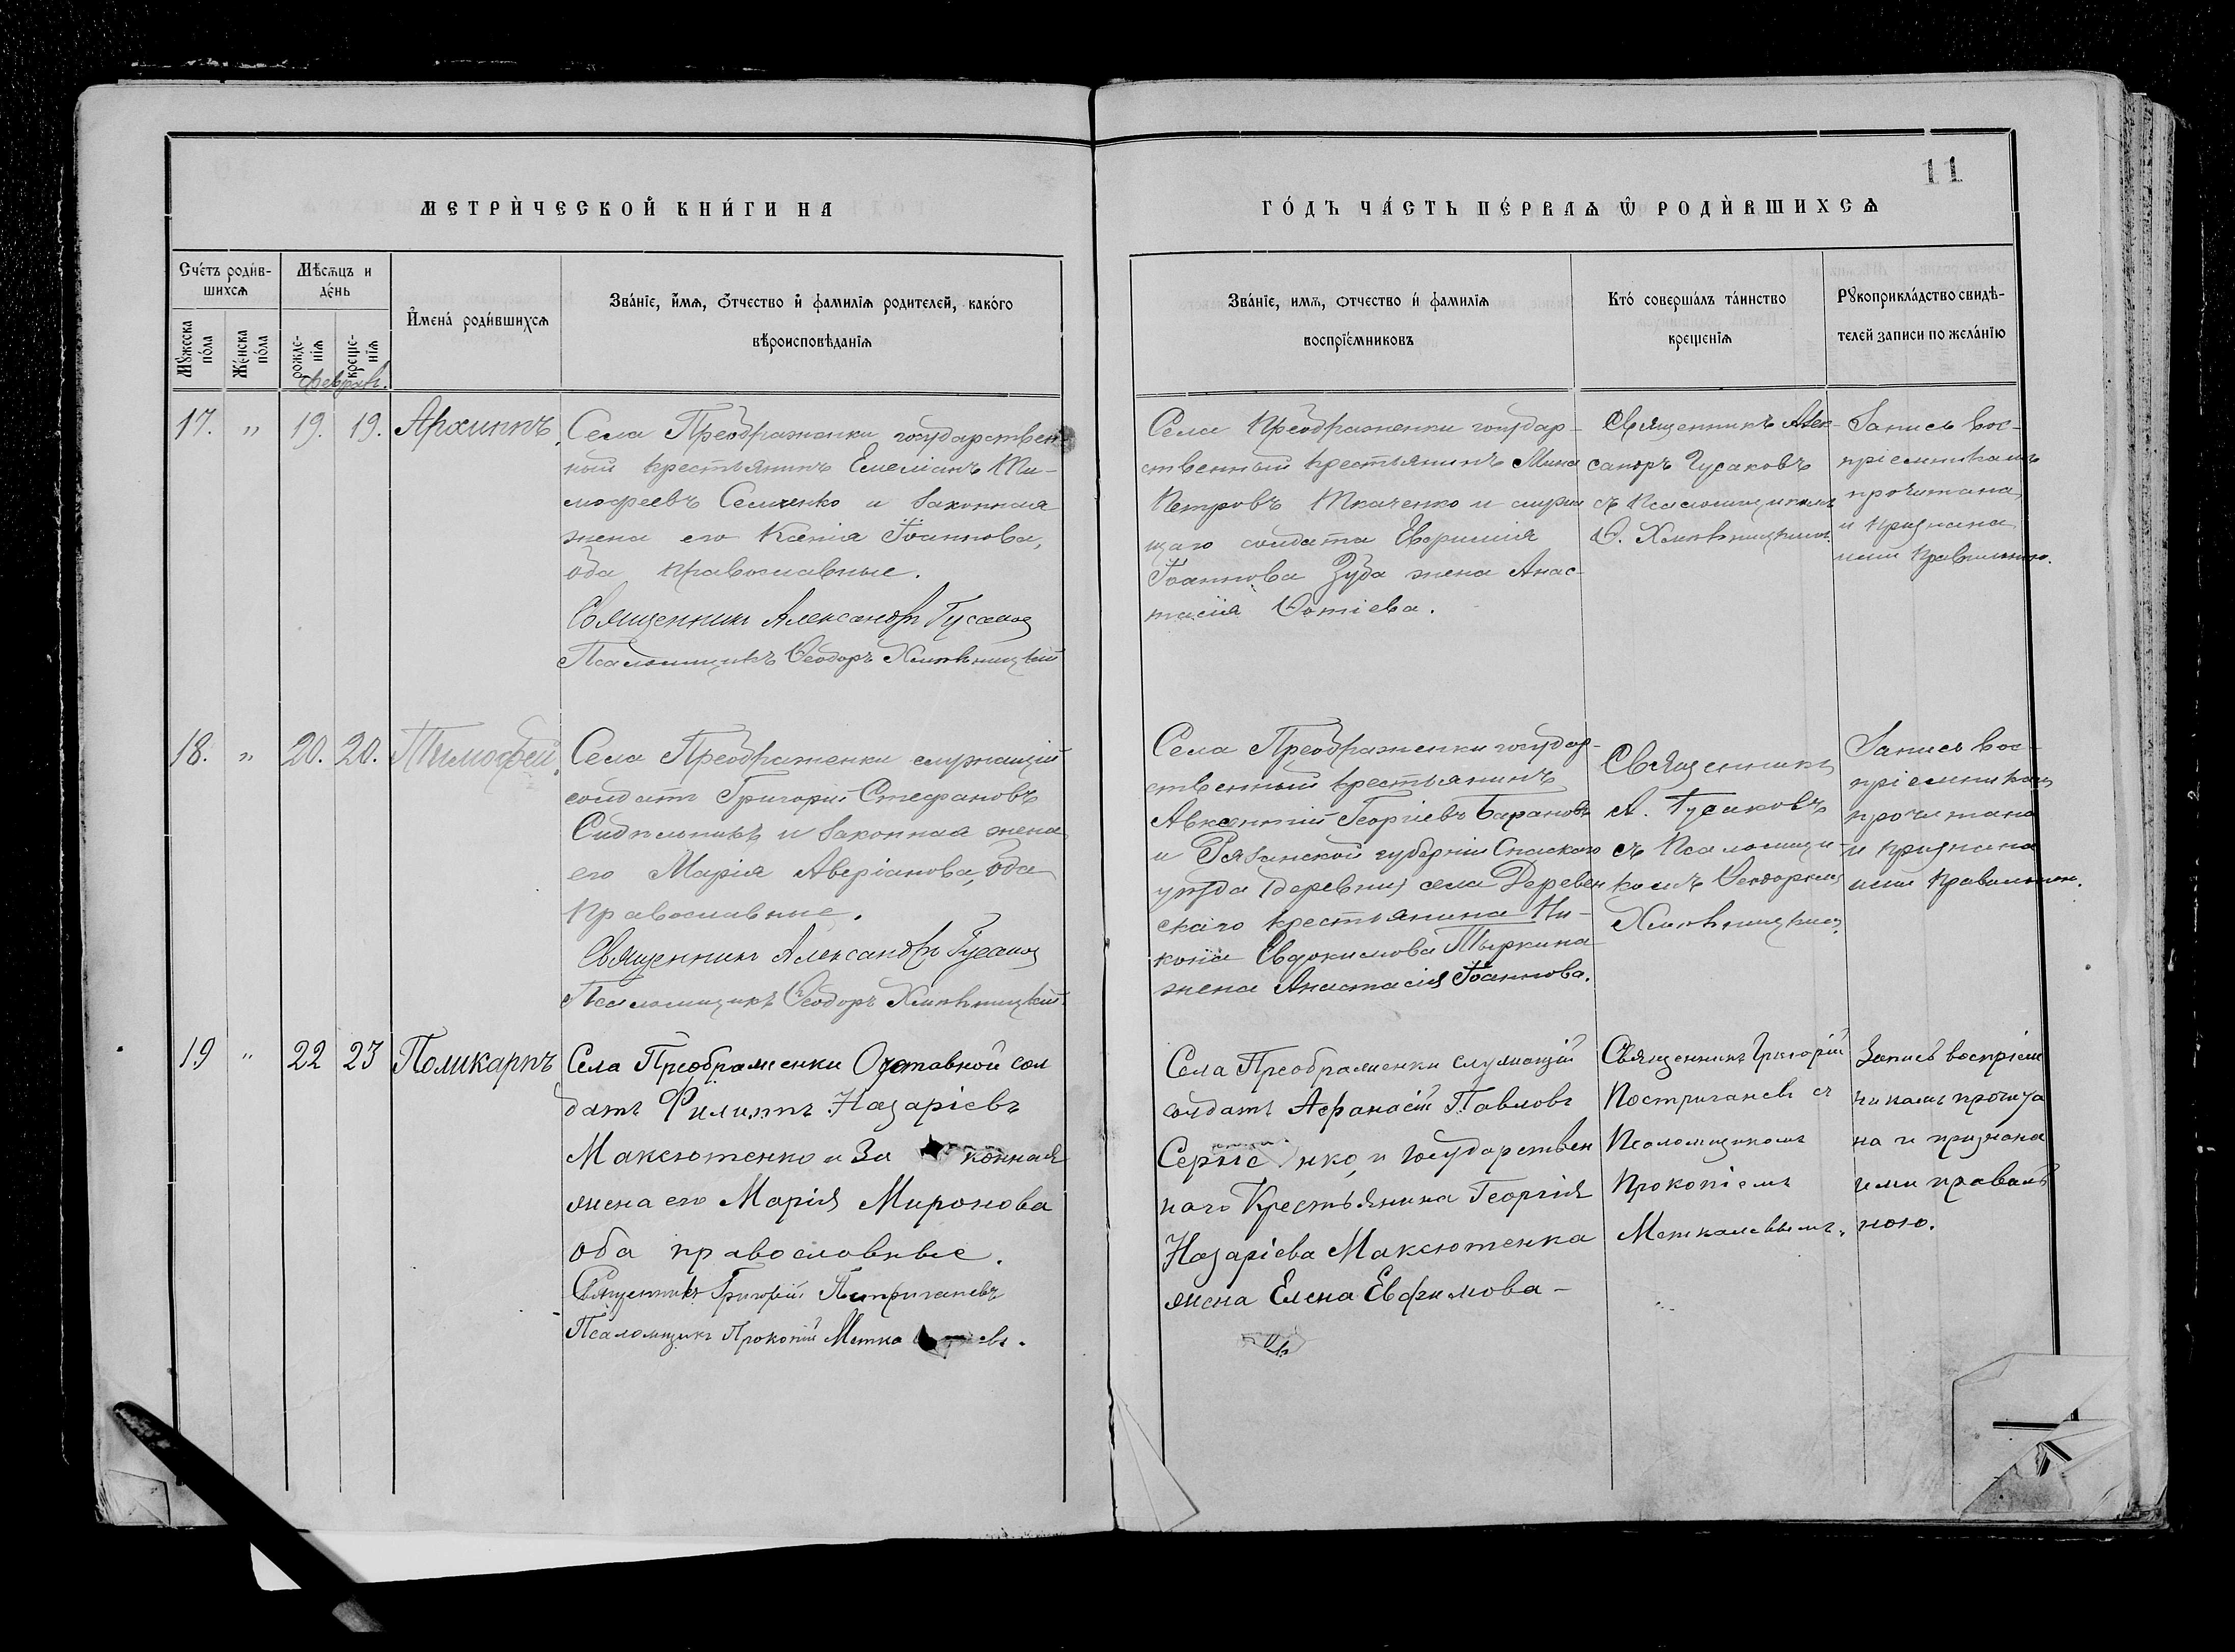 11
МЕТРИ́ЧЕСКОЙ КНИ́ГИ НА
ГО́ДЪ ЧА́СТЬ ПЕ́РВАѦ Ѡ РОДИ́ВШИХСѦ
Сче́тъ роди́в-
шихсѧ
Мѣ́сѧцъ и
де́нь
Мꙋ́жеска
по́ла
Же́нска
по́ла
рожде-
нїѧ
креще-
нїѧ
И҆мена̀ роди́вшихсѧ
Зва́нїе, и҆́мѧ, ѻ҆́тчество и҆ фамилїѧ родителей, како́го
вѣроисповѣ́данїѧ
Зва́нїе, имѧ, ѻтчество и҆ фамилїѧ
воспрїе́мниковъ
Кто́ соверша́лъ та́инство
креще́нїѧ
Рꙋкоприкла́дство свидѣ-
телей записи по жела́нїю
Феврал.
17. " 19. 19. Архиппъ
Села Преображенки государствен
ный крестьянинъ Емеліанъ Ти-
мофеевъ Семченко и законная
жена его Ксенія Іоаннова,
оба православные.
Священникъ Александръ Гусаковъ
Псаломщикъ Ѳеодоръ Хмѣльницкій
Села Преображенки государ-
ственный крестьянинъ Мина
Петровъ Ткаченко и служа
щаго солдата Евфимія
Іоаннова Зуба жена Анас-
тасія Фотіева.
Священникъ Алек-
сандръ Гусаковъ
съ Псаломщикомъ
Ѳ. Хмѣльницкимъ
Запись вос-
пріемникамъ
прочитана
и признана
ими правильною.
18. " 20. 20. Тимофей
Села Преображенки служащій
солдатъ Григорій Стефановъ
Сидѣльникъ и законная жена
его Марія Аверіанова, оба
православные.
Священникъ Александръ Гусаковъ
Псаломщикъ Ѳеодоръ Хмѣльницкій
Села Преображенки государ-
ственный крестьянинъ
Авксентій Георгіевъ Барановъ
и Рязанской губерніи Спаскаго
уѣзда (деревни) села Деревен
скаго крестьянина Ни-
кона Евдокимова Тыркина
жена Анастасія Іоаннова.
Священникъ
А. Гусаковъ
съ Псаломщи-
комъ Ѳеодоромъ
Хмѣльницкимъ
Запись вос-
пріемникамъ
прочитана
и признана
ими правильною.
19 " 22 23 Поликарпъ
Села Преображенки Отставной сол
датъ Филиппъ Назаріевъ
Максютенко и За конная
жена его Марія Миронова
оба православные.
Священникъ Григорій Постриганевъ
Псаломщикъ Прокопій Метка евъ.
Села Преображенки служащій
солдатъ Афанасій Павловъ
нко, и Государствен
наго Крестьянина Георгія
Назаріева Максютенка
жена Елена Евфимова –
Священникъ Григорій
Постриганевъ съ
Псаломщикомъ
Прокопіемъ
Меткалевымъ.
Запись воспріем
никамъ прочита
на и признана
ими праваль
ною.